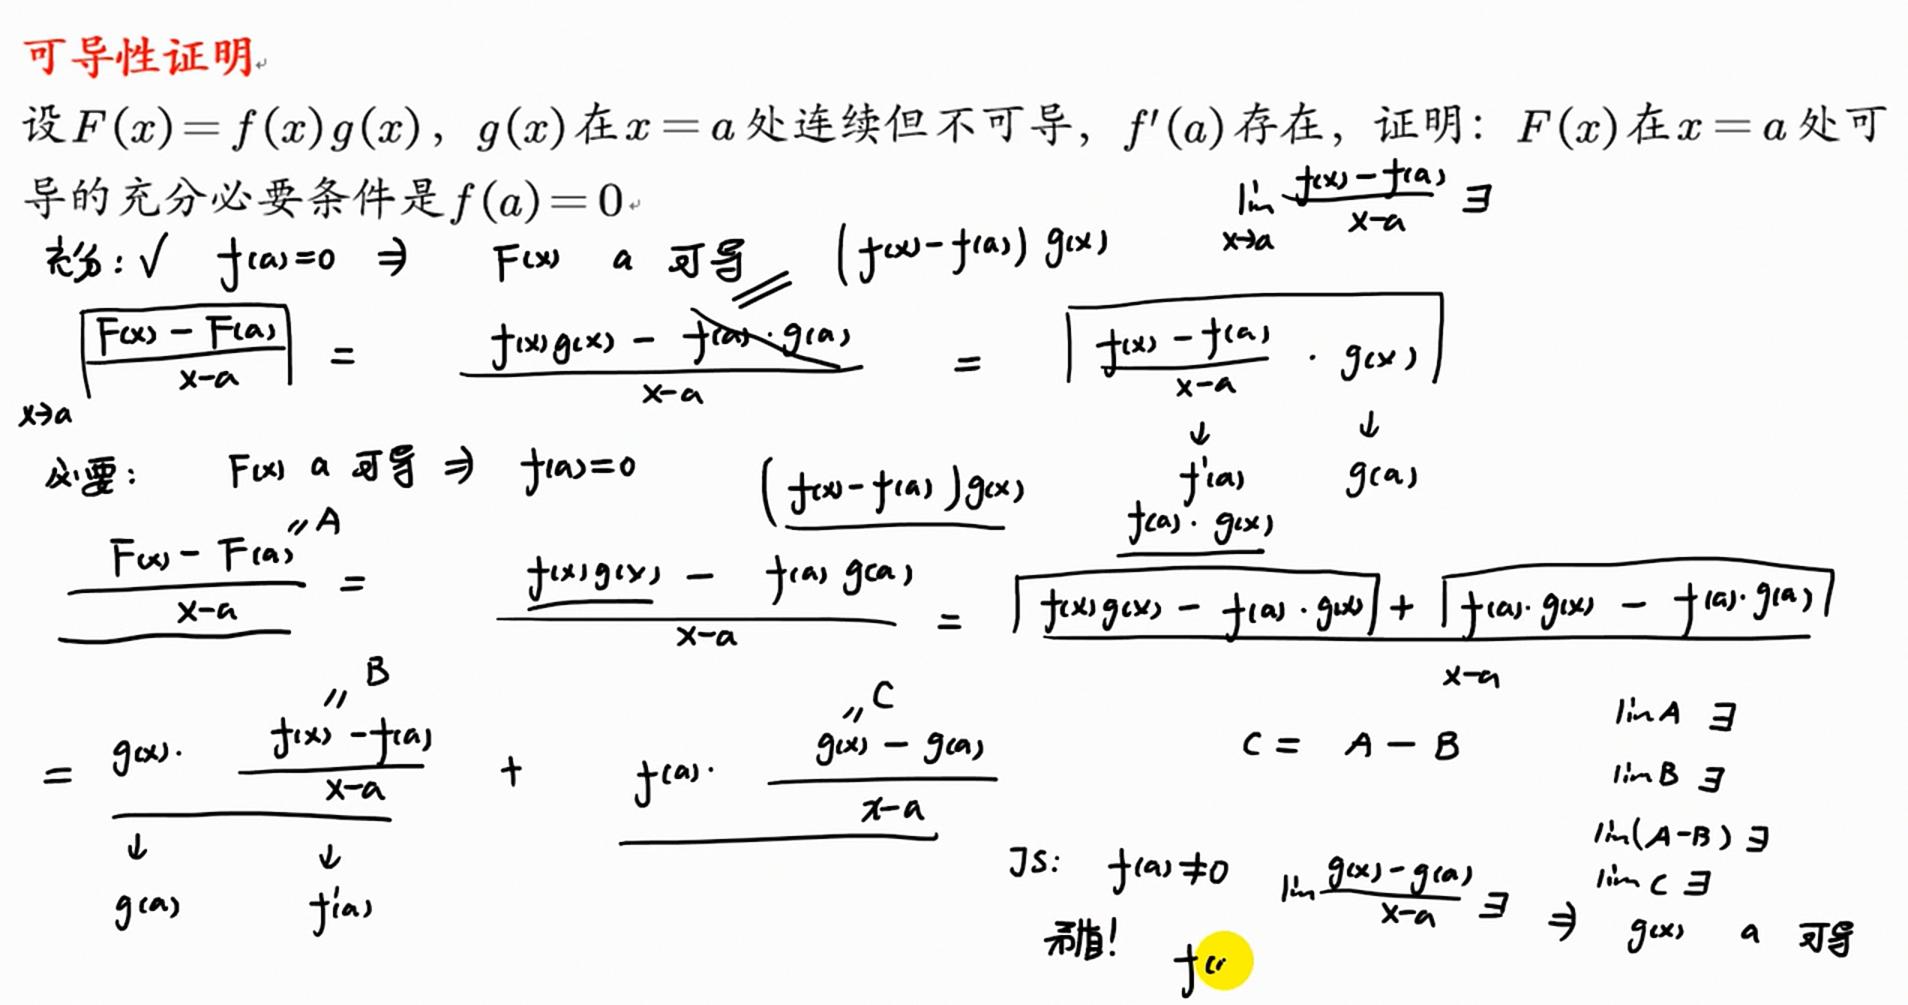 可导性证明
设F(x)=f(x)g(x)，g(x)在x=a处连续但不可导，f′(a)存在，证明：F(x)在x=a处可
导的充分必要条件是f(a)=0
lim x→a (f(x)-f(a))/(x-a) ∃
充分：√ f(a)=0 ⇒ F(x) a 可导 (f(x)-f(a)) g(x)
x→a (F(x)-F(a))/(x-a) = (f(x)g(x) - f(a)·g(a))/(x-a) = (f(x)-f(a))/(x-a) · g(x)
↓ ↓
f'(a) g(a)
必要： F(x) a 可导 ⇒ f(a)=0 (f(x)-f(a))g(x)
f(a)·g(x)
(F(x)-F(a))/(x-a) = (f(x)g(x) - f(a)g(a))/(x-a) = (f(x)g(x) - f(a)·g(x) + f(a)·g(x) - f(a)·g(a))/(x-a)
〃A
〃B 〃C
= g(x)· (f(x)-f(a))/(x-a) + f(a)· (g(x)-g(a))/(x-a)
↓ ↓
g(a) f'(a)
C = A - B
lim A ∃
lim B ∃
lim(A-B) ∃
lim C ∃
JS: f(a)≠0 lim (g(x)-g(a))/(x-a) ∃ ⇒ g(x) a 可导
矛盾! f(